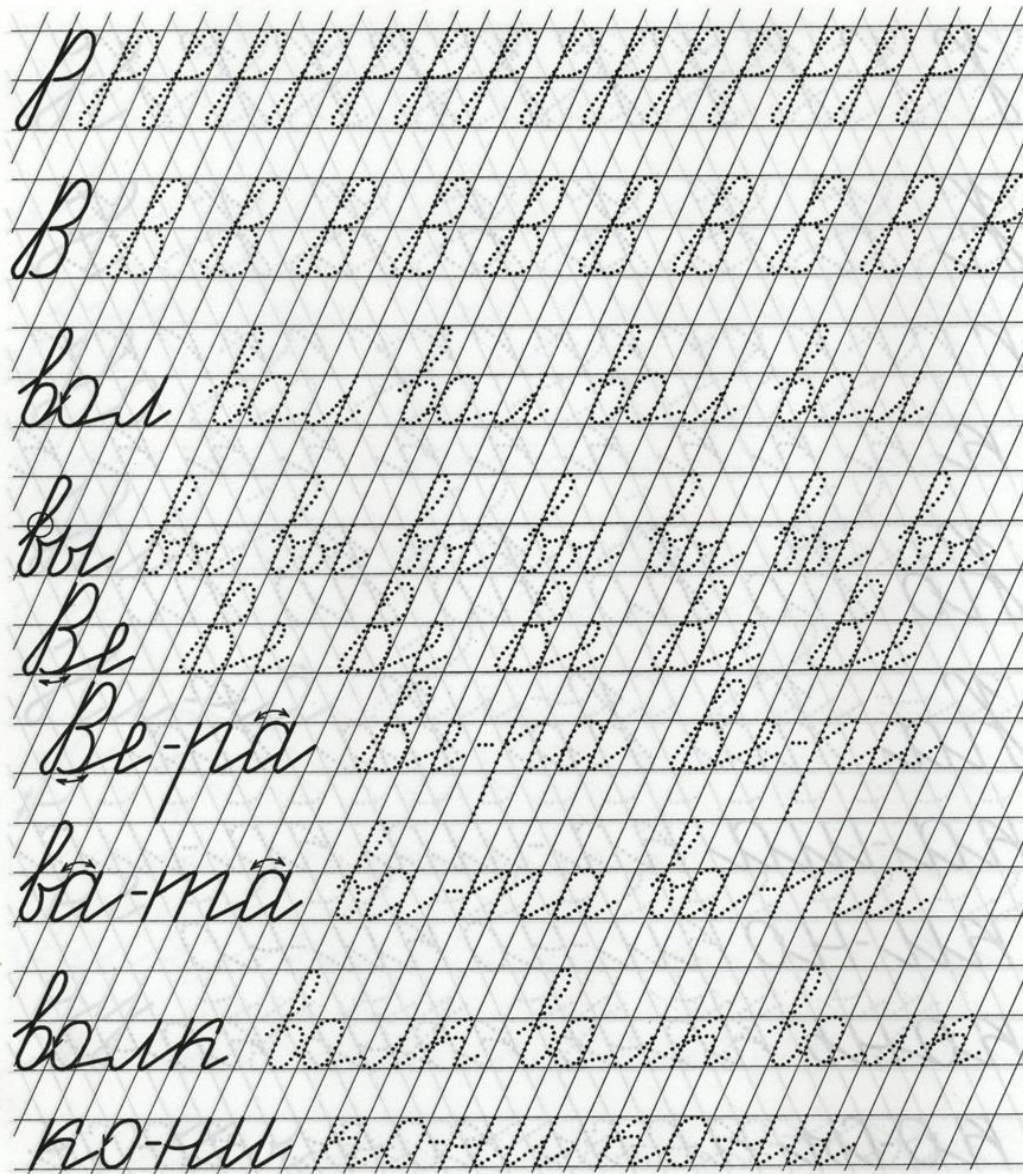 Р Р Р Р Р Р Р Р Р Р Р Р Р Р Р
В В В В В В В В В В В
вол вол вол вол вол
вы вы вы вы вы вы вы вы
Ве Ве Ве Ве Ве Ве
Ве-ра Ве-ра Ве-ра
ва-та ва-та ва-та
волк волк волк волк
ко-ни ко-ни ко-ни